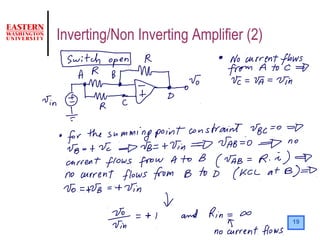 EASTERN
WASHINGTON
UNIVERSITY
Inverting/Non Inverting Amplifier (2)
Switch open
R
A R B
R C
D
vo
vin
• No current flows
from A to C ⇒
vC = vA = vin
• for the summing point constraint vBC=0 ⇒
vB = + vC → vB = + vin ⇒ vAB = 0 ⇒ no
current flows from A to B (vAB = R.i) ⇒
no current flows from B to D (KCL at B) ⇒
vo = +vB = + vin
↓
vo/vin = +1 and Rin = ∞
↑
no current flows
15